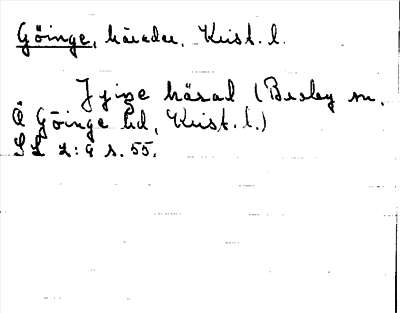 Göinge, härader, Krist. l.
J yze härad (Broby sn,
Ö Göinge hd, Krist. l.)
SL 2:9 s. 55.